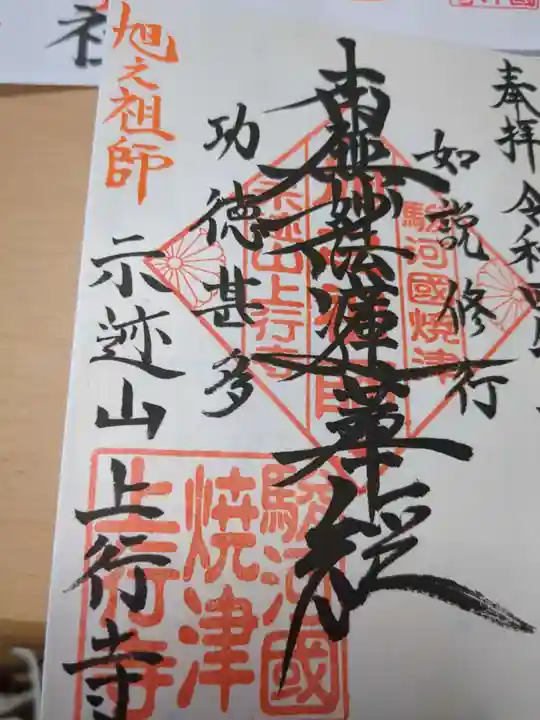 奉拝 令和四
如説修行
南無妙法蓮華経
功徳甚多
旭之祖師
示迹山 上行寺
駿河國焼津
示迹山上行寺
駿河國
焼津
上行寺